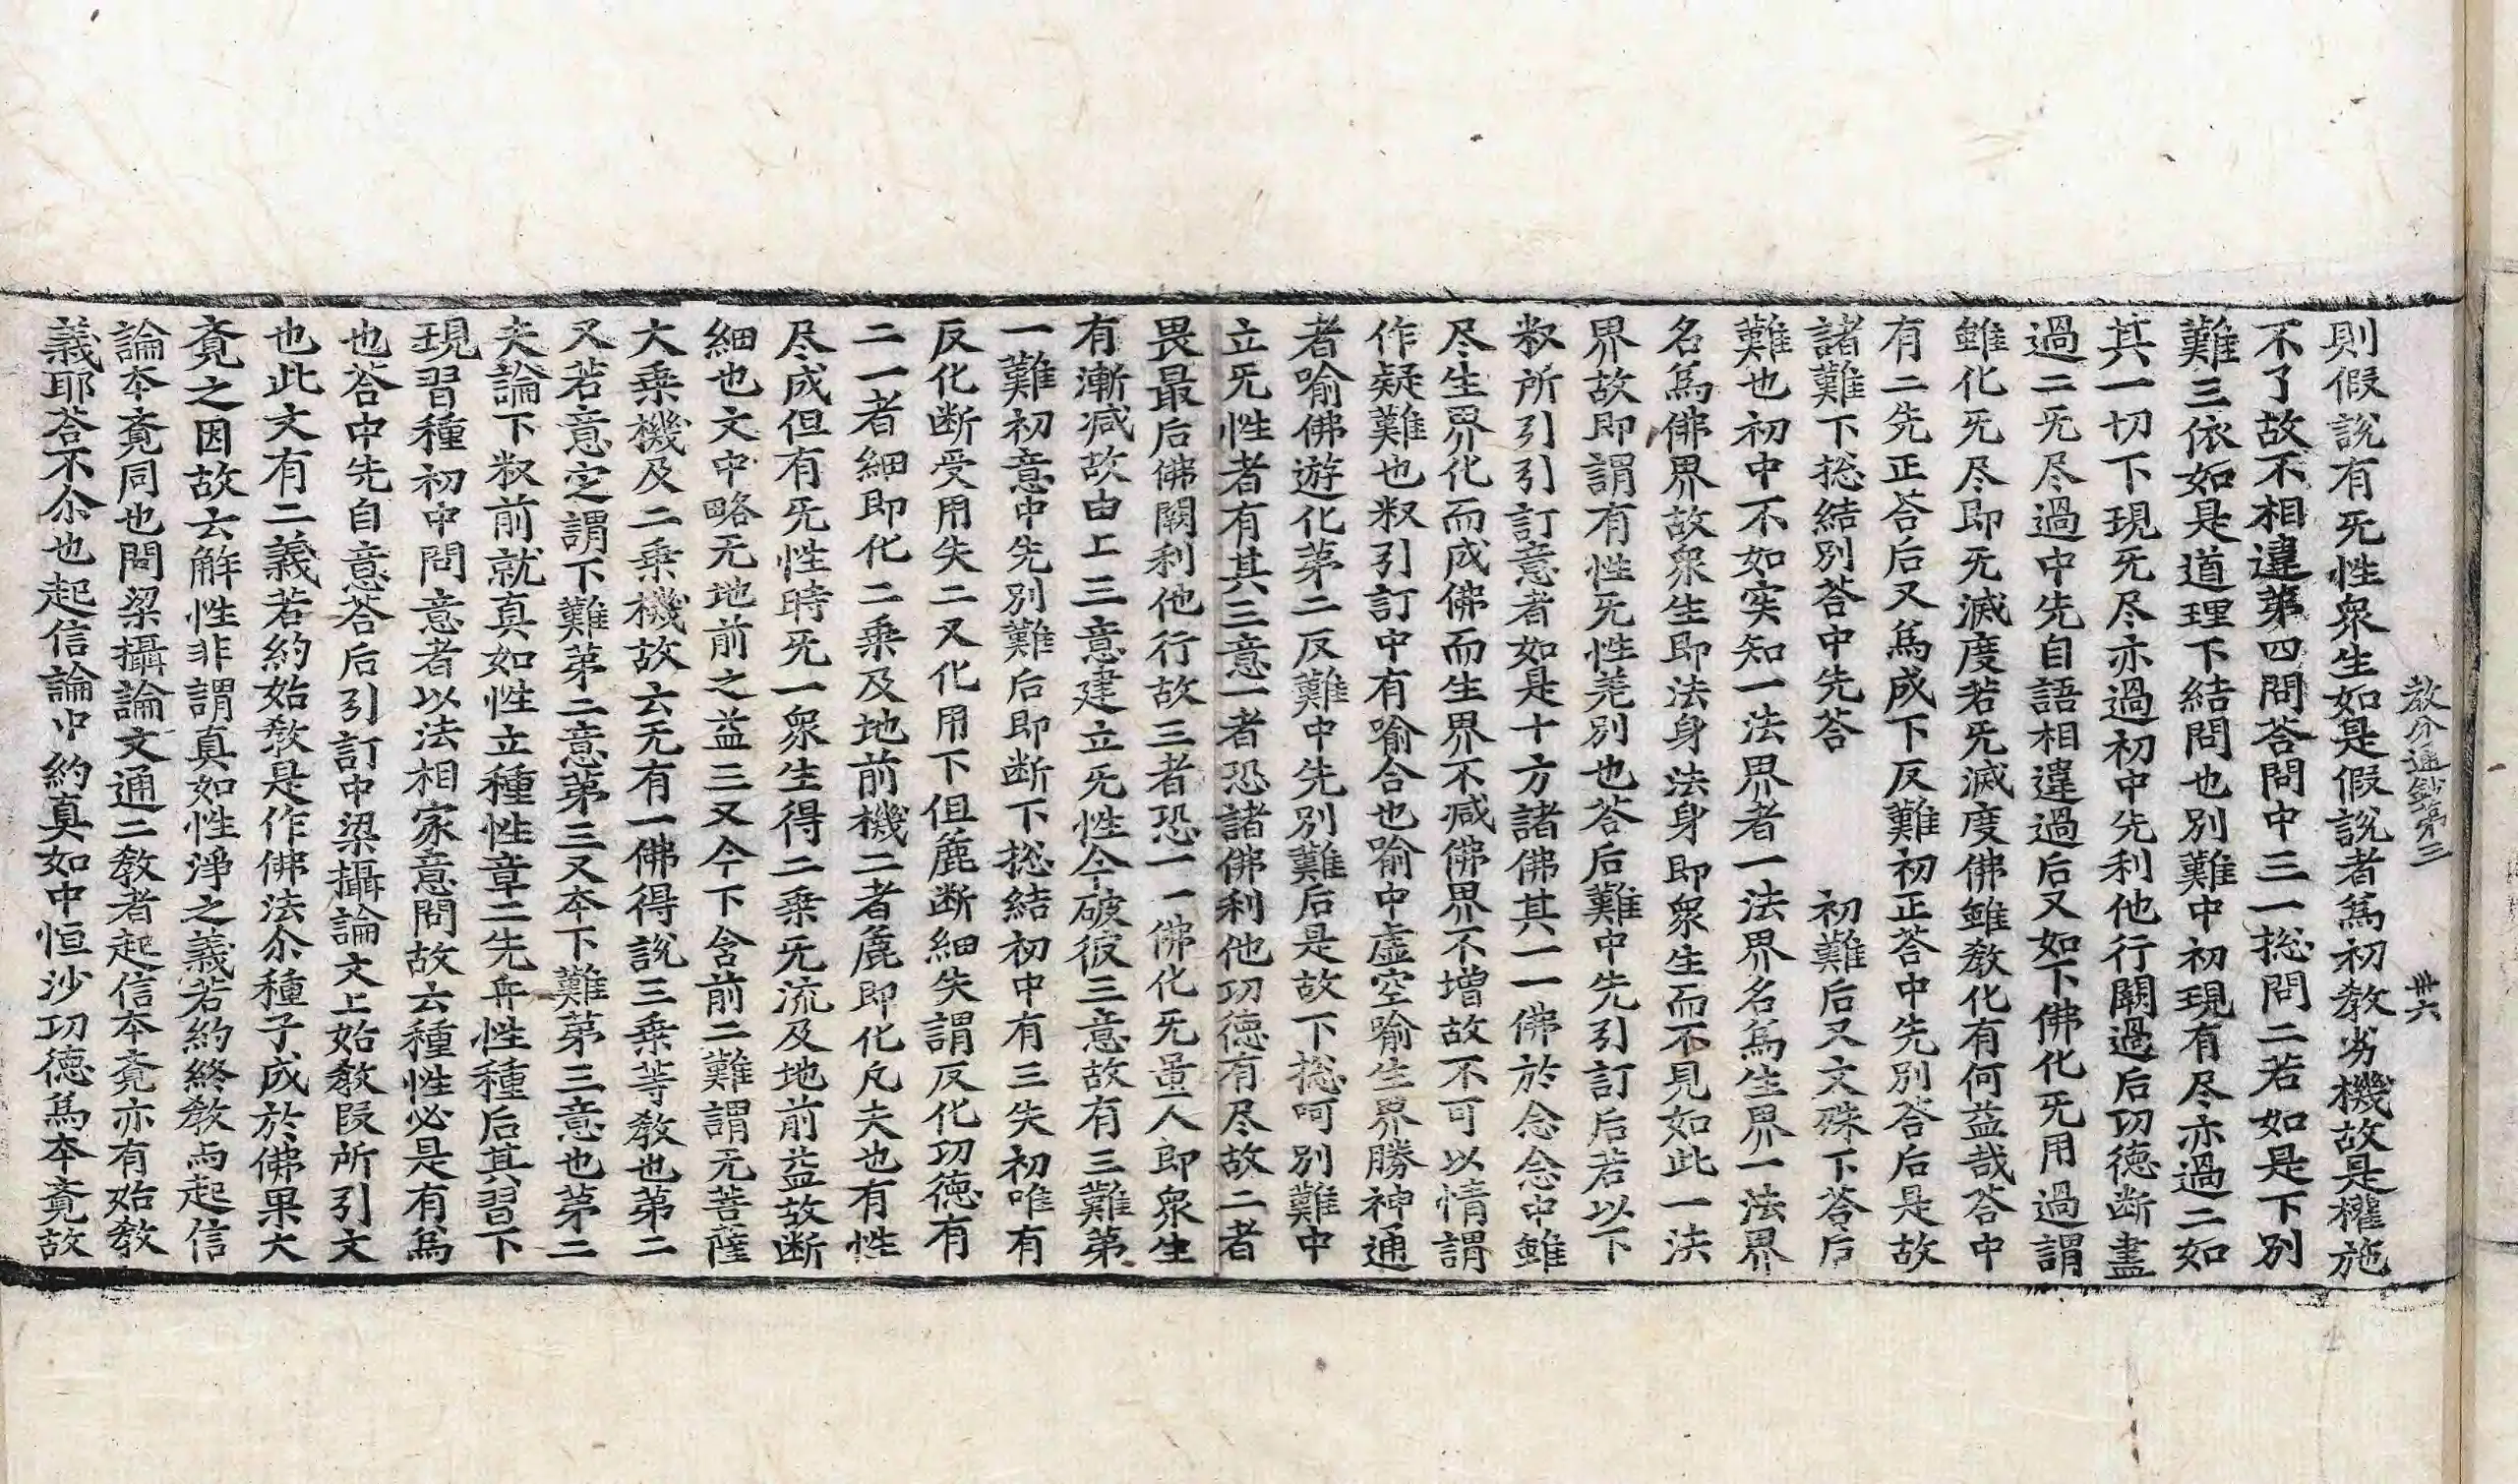 教分通鈔第三　卅六
則假說有旡性衆生如是假說者爲初教劣機故是權施
不了故不相違第四問荅問中三一揔問二若如是下別
難三依如是道理下結問也別難中初現有尽亦過二如
其一切下現旡尽亦過初中先利他行闕過后功德断盡
過二旡尽過中先自語相違過后又如下佛化旡用過謂
雖化旡尽即旡滅度若旡滅度佛雖教化有何益哉荅中
有二先正荅后又爲成下反難初正荅中先別荅后是故
諸難下揔結別荅中先荅　初難后又文殊下荅后
難也初中不如实知一法界者一法界名爲生界一法界
名爲佛界故衆生即法身法身即衆生而不見如此一法
界故即謂有性旡性差別也荅后難中先引訂后若以下
釈所引引訂意者如是十方諸佛其一一佛於念念中雖
尽生界化而成佛而生界不减佛界不增故不可以情謂
作疑難也釈引訂中有喻合也喻中虛空喻生界勝神通
者喻佛遊化第二反難中先別難后是故下揔呵別難中
立旡性者有其三意一者恐諸佛利他功德有尽故二者
畏最后佛闕利他行故三者恐一一佛化旡量人即衆生
有漸减故由上三意建立旡性今破彼三意故有三難第
一難初意中先別難后即断下揔結初中有三失初唯有
反化断受用失二又化用下但麁断細失謂反化功德有
二一者細即化二乗及地前機二者麁即化凡夫也有性
尽成但有旡性時旡一衆生得二乗旡流及地前益故断
細也文中略无地前之益三又今下含前二難謂无菩薩
大乗機及二乗機故云无有一佛得說三乗等教也第二
又若意㝎謂下難第二意第三又本下難第三意也第二
夫論下釈前就真如性立種性章二先弁性種后其習下
現習種初中問意者以法相家意問故云種性必是有爲
也荅中先自意荅后引訂中梁攝論文上始教叚所引文
也此文有二義若約始教是作佛法尒種子成於佛果大
覔之因故云解性非謂真如性淨之義若約終教而起信
論本覔同也問梁攝論文通二教者起信本覔亦有始教
義耶荅不尒也起信論中約真如中恒沙功德爲本覔故